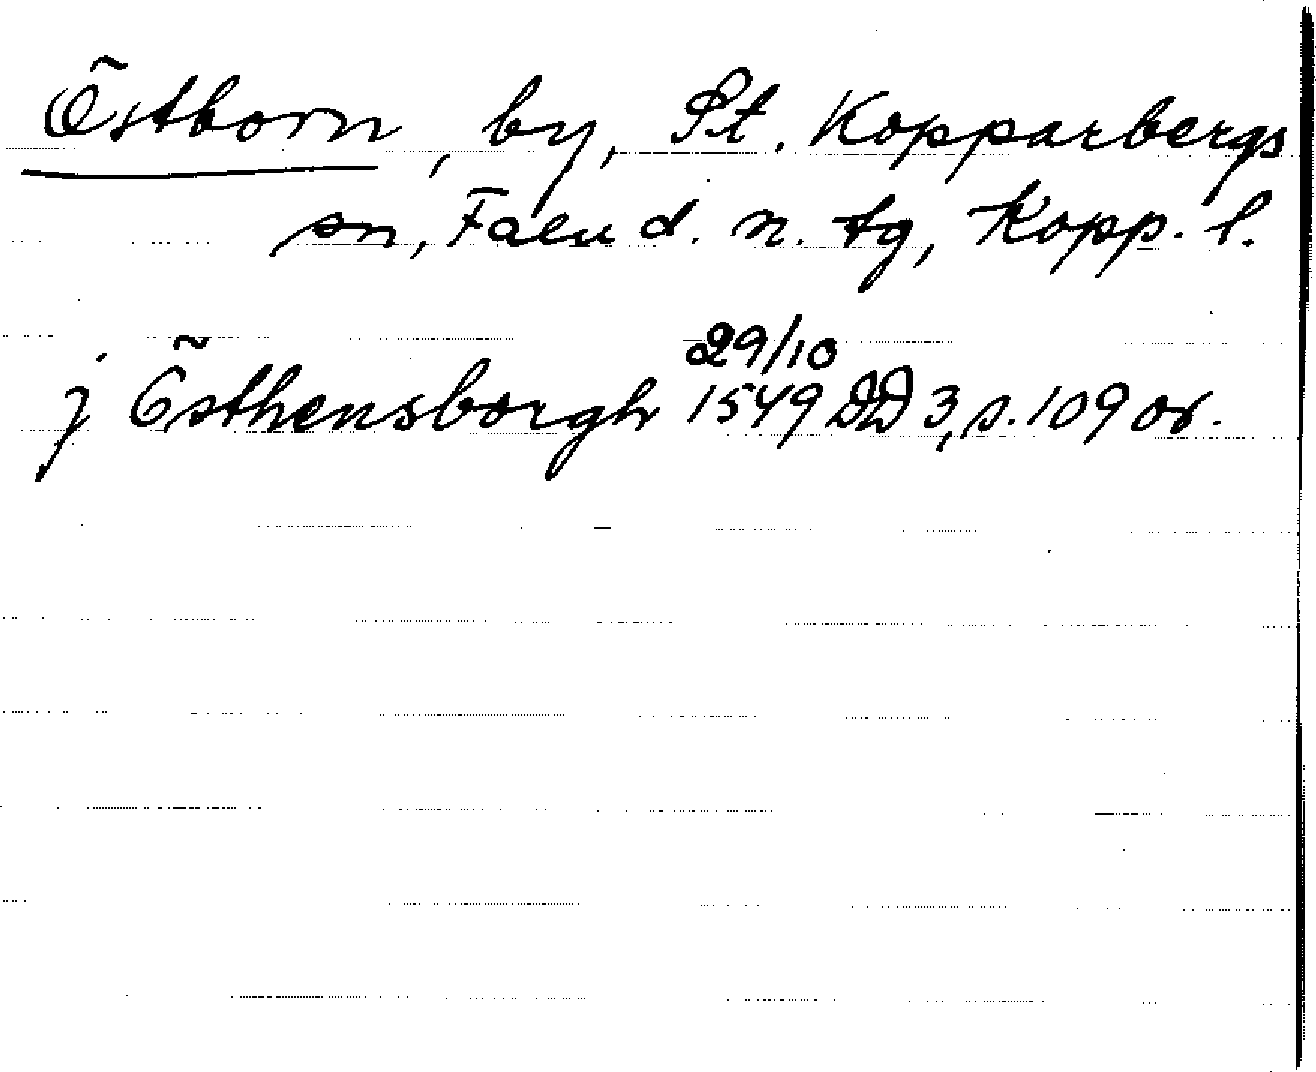 Östborn, by, St. Kopparbergs
sn, Falu d. n. tg, Kopp. l.
29/10
j Östhensborgh 1549 DD 3, s. 109 or.